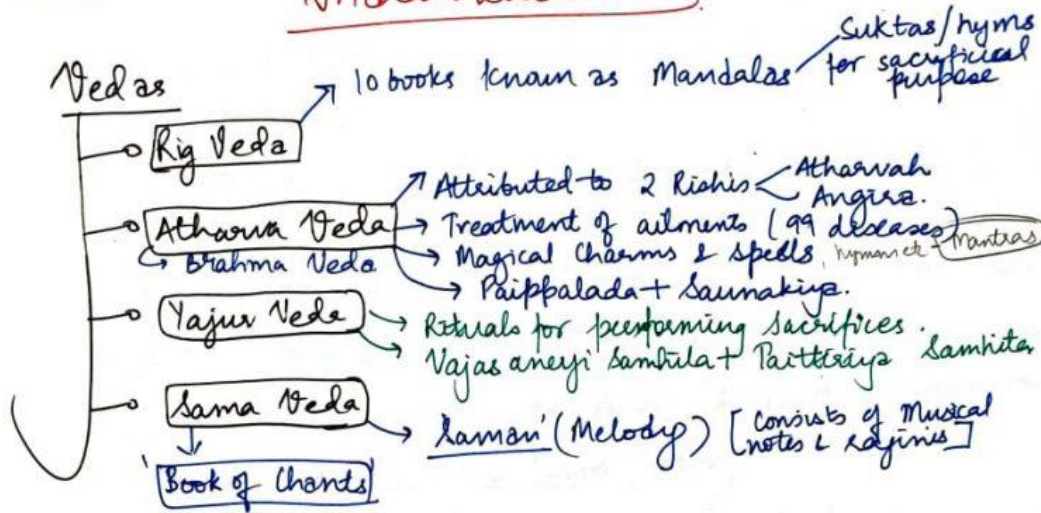 Vedas
10 books known as Mandalas
Suktas/hyms
for sacrificial
purpose
Rig Veda
Atharva Veda
Brahma Veda
Attributed to 2 Rishis
Atharvah
Angira.
Treatment of ailments (99 diseases)
Magical Charms & spells, Mantras
Paippalada + Saunakiya.
Yajur Veda
Rituals for performing sacrifices.
Vajasaneyi Samhita + Taittiriya Samhita
Sama Veda
'Saman' (Melody) [Consists of Musical
notes & raginis]
'Book of Chants'